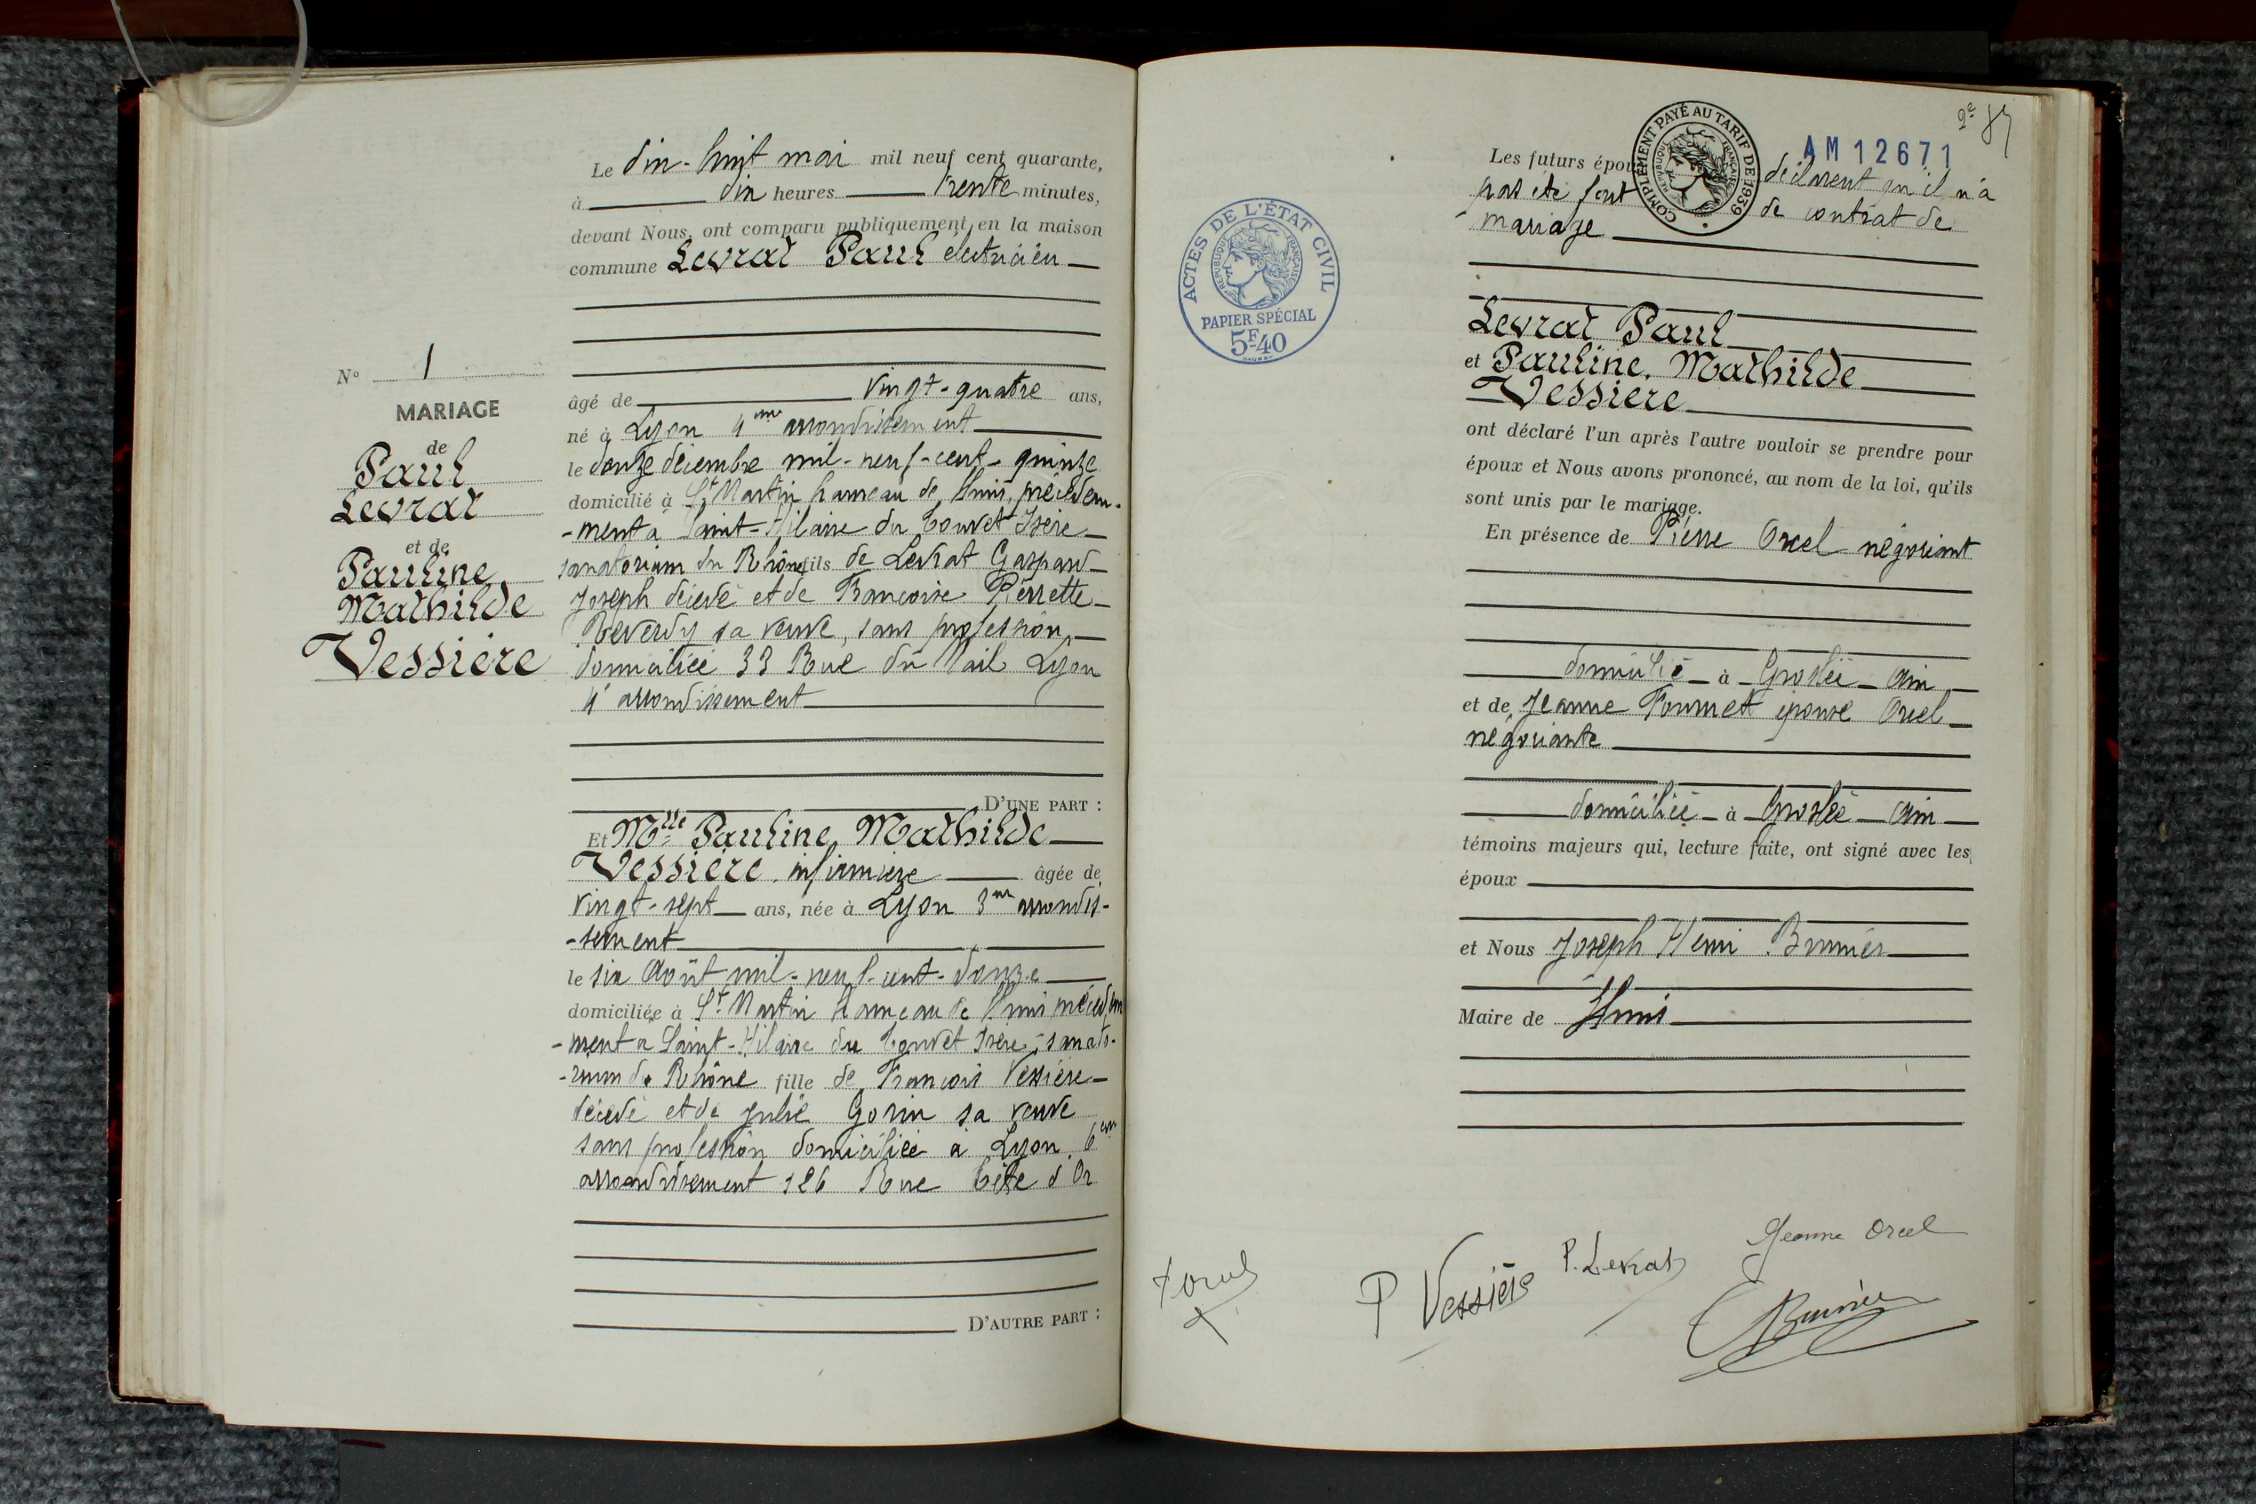 Le dix-huit mai mil neuf cent quarante,
à dix heures trente minutes,
devant Nous, ont comparu publiquement en la maison
commune Levrat Paul électricien
N° 1
MARIAGE
de
Paul
Levrat
et de
Pauline
Mathilde
Vessière
âgé de vingt-quatre ans,
né à Lyon 4me arrondissement
le douze décembre mil-neuf-cent-quinze
domicilié à St Martin hameau de Lhuis, précédem-
-ment à Saint-Hilaire du Touvet Isère
sanatorium du Rhône fils de Levrat Gaspard
Joseph décédé et de Françoise Pierrette
Reverdy sa veuve, sans profession,
domiciliée 33 Rue du Mail Lyon
4e arrondissement
D'UNE PART :
Et Mlle Pauline, Mathilde
Vessière, infirmière âgée de
vingt-sept ans, née à Lyon 3me arrondis-
-sement
le six Août mil-neuf-cent-douze
domiciliée à St Martin hameau de Lhuis précédem
-ment à Saint-Hilaire du Touvet Isère, sanato-
-rium du Rhône fille de François Vessière
décédé et de Julie Gorin sa veuve
sans profession domiciliée à Lyon 6em
arrondissement 126 Rue Tête d'Or
D'AUTRE PART :
ACTES DE L'ÉTAT CIVIL
RÉPUBLIQUE FRANÇAISE
PAPIER SPÉCIAL
5F40
2e 87
COMPLÉMENT PAYÉ AU TARIF DE 1939
RÉPUBLIQUE FRANÇAISE
AM 12671
Les futurs épou déclarent qu'il n'a
pas été fait de contrat de
mariage
Levrat Paul
et Pauline, Mathilde
Vessière
ont déclaré l'un après l'autre vouloir se prendre pour
époux et Nous avons prononcé, au nom de la loi, qu'ils
sont unis par le mariage.
En présence de Pierre Orcel négociant
domicilié à Groslée Ain
et de Jeanne Fournet épouse Orcel
négociante
domiciliée à Groslée Ain
témoins majeurs qui, lecture faite, ont signé avec les
époux
et Nous Joseph Henri Brunier
Maire de Lhuis
Jeanne Orcel
P. Levrat
P Vessière
Orcel
Brunier